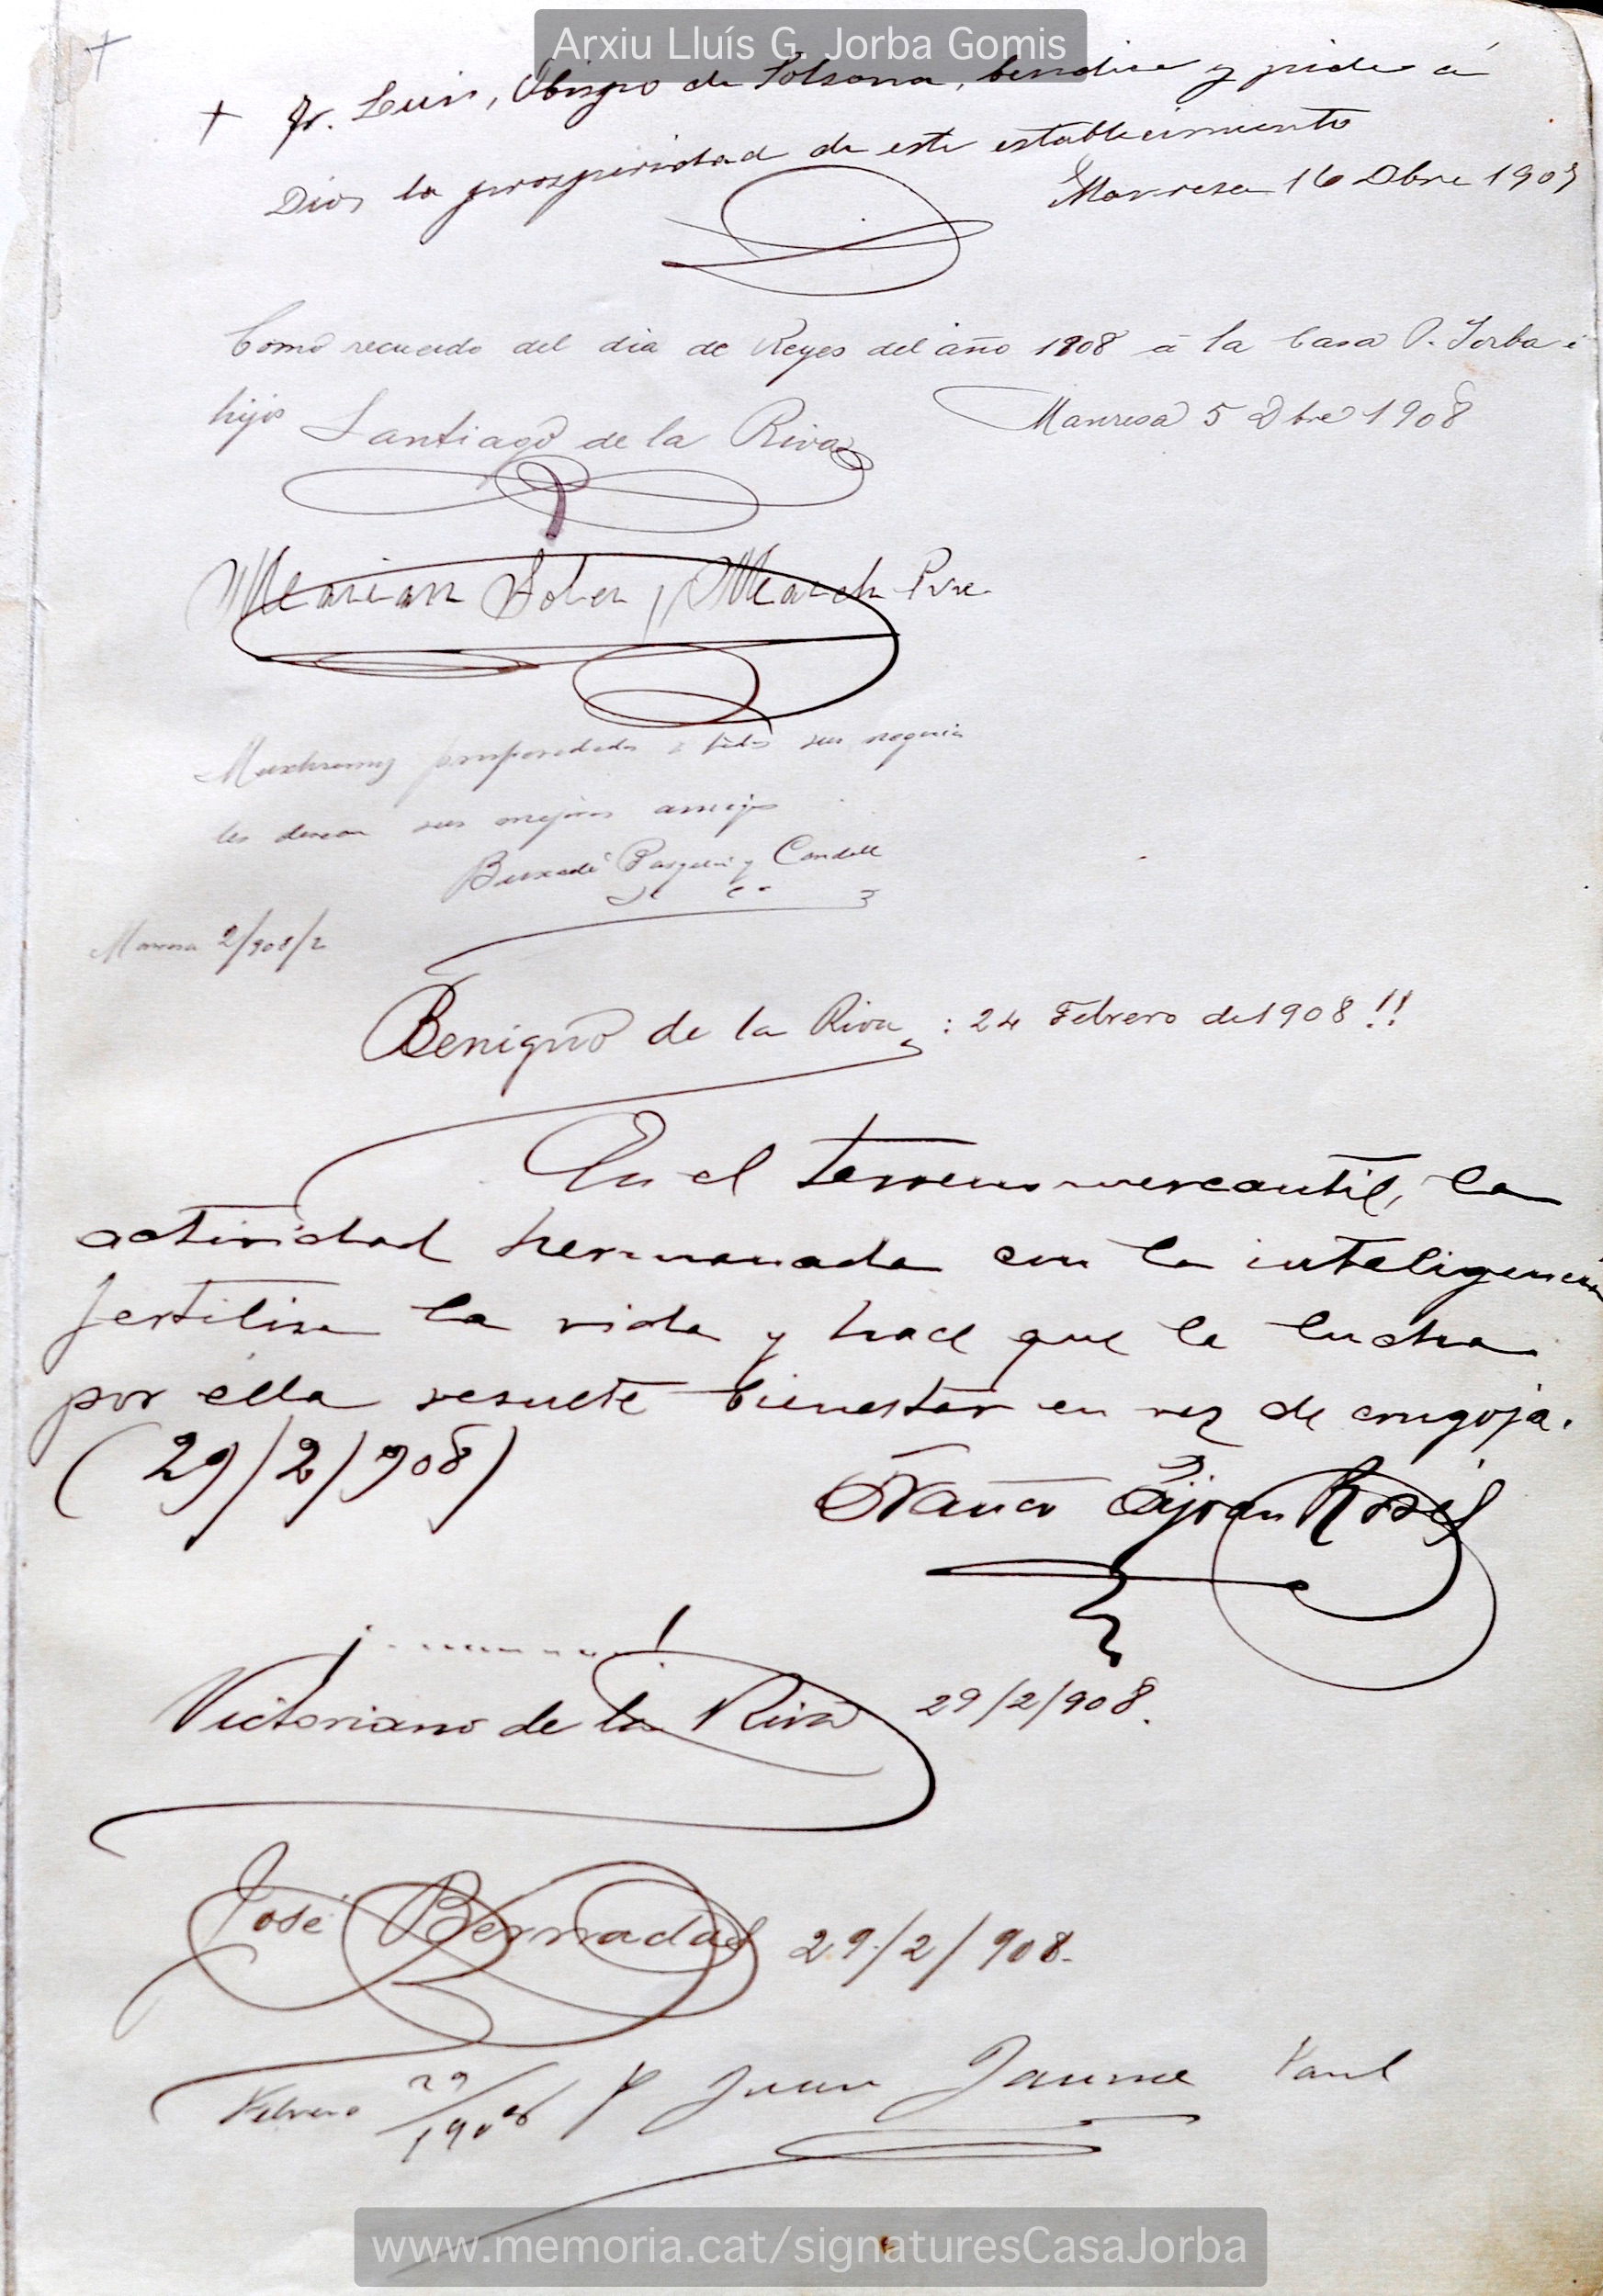 Arxiu Lluís G. Jorba Gomis
+ Fr. Luis, Obispo de Solsona, bendice y pide á
Dios la prosperidad de este establecimiento
Manresa 16 Dbre 1907
Como recuerdo del dia de Reyes del año 1908 á la Casa P. Jorba é
hijo Santiago de la Riva Manresa 5 Dbre 1908
Marian Soler y March Pvre.
prosperidades á todos sus negocios
les desean sus mejores amigos
Buxadé y
Manresa 2/908/2
Benigno de la Riva : 24 Febrero de 1908 !!
En el terreno mercantil, la
actividad hermanada con la inteligencia
fertilisa la vida y hace que la lucha
por élla resulte bienestar en vez de congoja.
(29/2/908)
Rosés
¡.........!
Victoriano de la Riva 29/2/908.
José Bernadas 29/2/908.
Febrero 29/1908 Juan Jaume
www.memoria.cat/signaturesCasaJorba